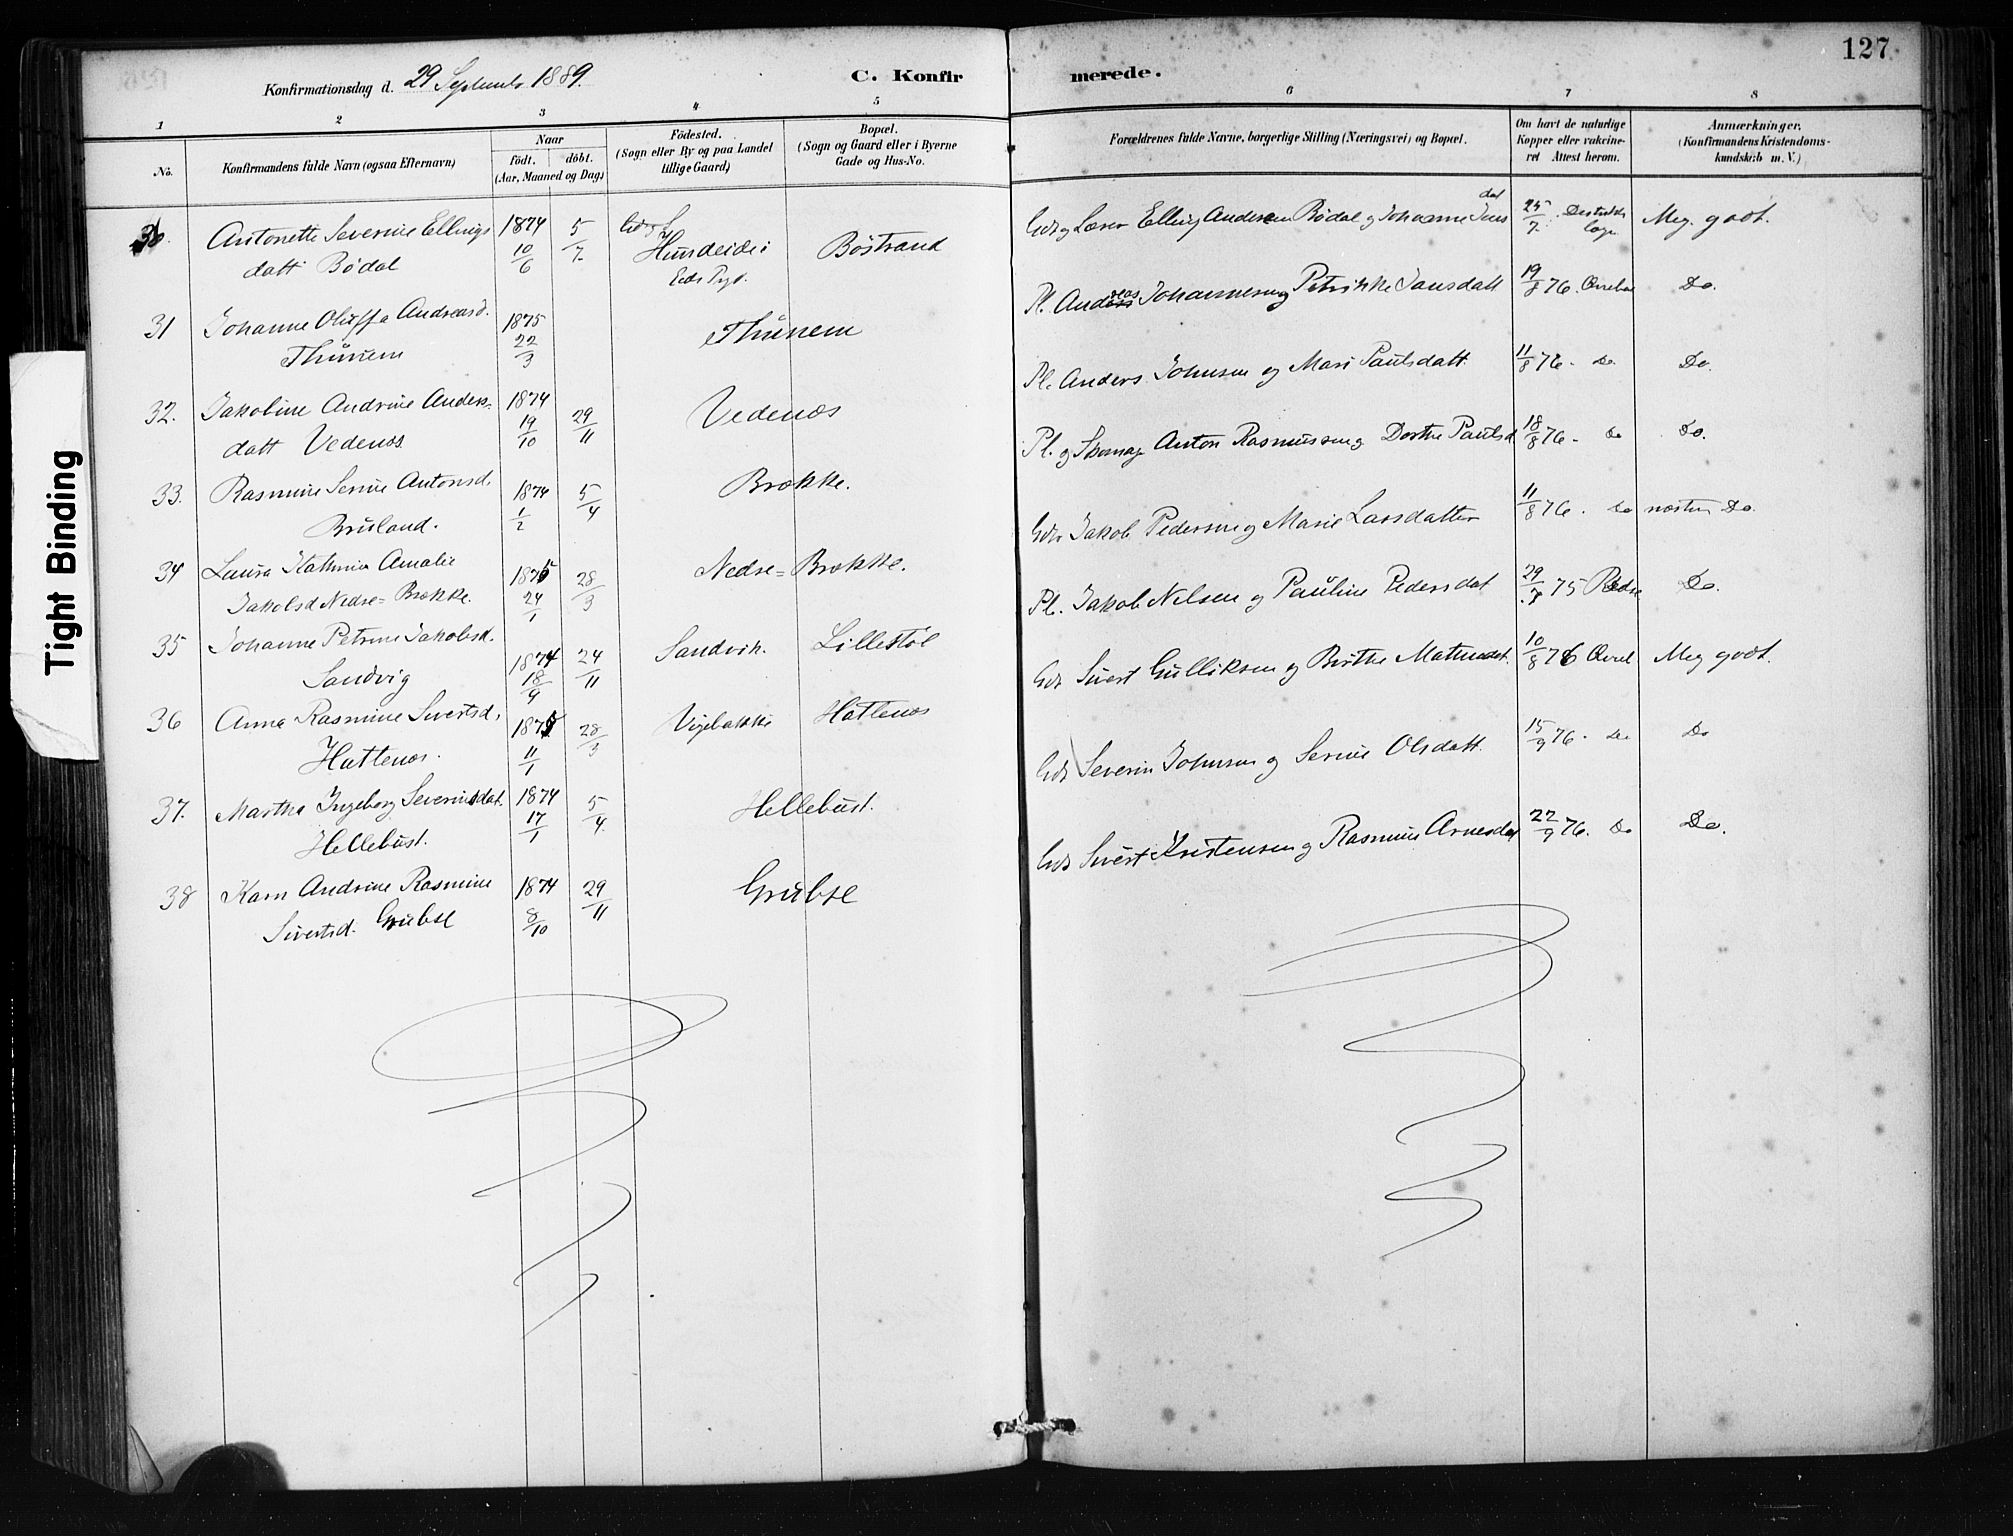 127
Konfirmationsdag d. 29 September 1889.
C. Konfir
merede.
1 2 3 4 5 6 7 8
No.
Konfirmandens fulde Navn (ogsaa Efternavn)
Naar
født. døbt.
(Aar, Maaned og Dag)
Fødested.
(Sogn eller By og paa Landet
tillige Gaard)
Bopæl.
(Sogn og Gaard eller i Byerne
Gade og Hus-No.
Forældrenes fulde Navne, borgerlige Stilling (Næringsvei) og Bopæl.
Om havt de naturlige
Kopper eller vakcine-
ret Attest herom.
Anmærkninger.
(Konfirmandens Kristendoms-
kundskab m. V.)
Tight Binding
Antonette Severine Ellings
datt Bødal
1874 10/6
5/7
Hundeide i
Eids Pgd.
Bøstrand
Gdr og Lærer Elling Andersen Bødal og Johanne Jens
dat
25/7
Meg. godt.
31
Johanne Oluffa Andreasd.
Thunem
1875 22/3
Thunem
Pl. Andreas Johannesen og Petrikke Jansdatt
19/8 76.
Do.
32.
Jakobine Andrine Anders-
datt Vedenæs
1874 19/10
29/11
Vedenæs
Pl. Anders Johnsen og Mari Paulsdatt
11/8 76. Do
Do.
33.
Rasmine Serine Antonsd.
Bruland.
1874 1/2
5/4
Brække.
Pl. og Skomag Anton Rasmussen og Dorthe Paulsd
18/8 76. Do
Do.
34
Laura Kathrina Amalie
Jakobsd Nedre-Brække.
1875 24/1
28/3
Nedre-Brække.
Gdr Jakob Pedersen og Marie Larsdatter
11/8 76. Do
næsten Do.
35
Johanne Petrine Jakobsd.
Sandvig
1874 18/9
24/11
Sandvik.
Lillestøl
Pl. Jakob Nelsen og Pauline Pedersdat
29/7 75
Do.
36
Anna Rasmine Sivertsd.
Hattenæs.
1875 11/1
28/3
Vigebakke
Hattenæs
Gdr Sivert Gulliksen og Birthe Mathiasdat.
10/8 76
Meg godt.
37.
Martha Ingeborg Severinsdat.
Hellebust.
1874 17/1
5/4.
Hellebust.
Gdr Severin Johnsen og Serine Olsdatt.
15/9 76. Do
Do
38
Karn Andrine Rasmine
Sivertsd. Grubse
1874 8/10
29/11
Grubse
Gdr Sivert Kristensen og Rasmine Arnesdat
22/9 76. Do
Do.